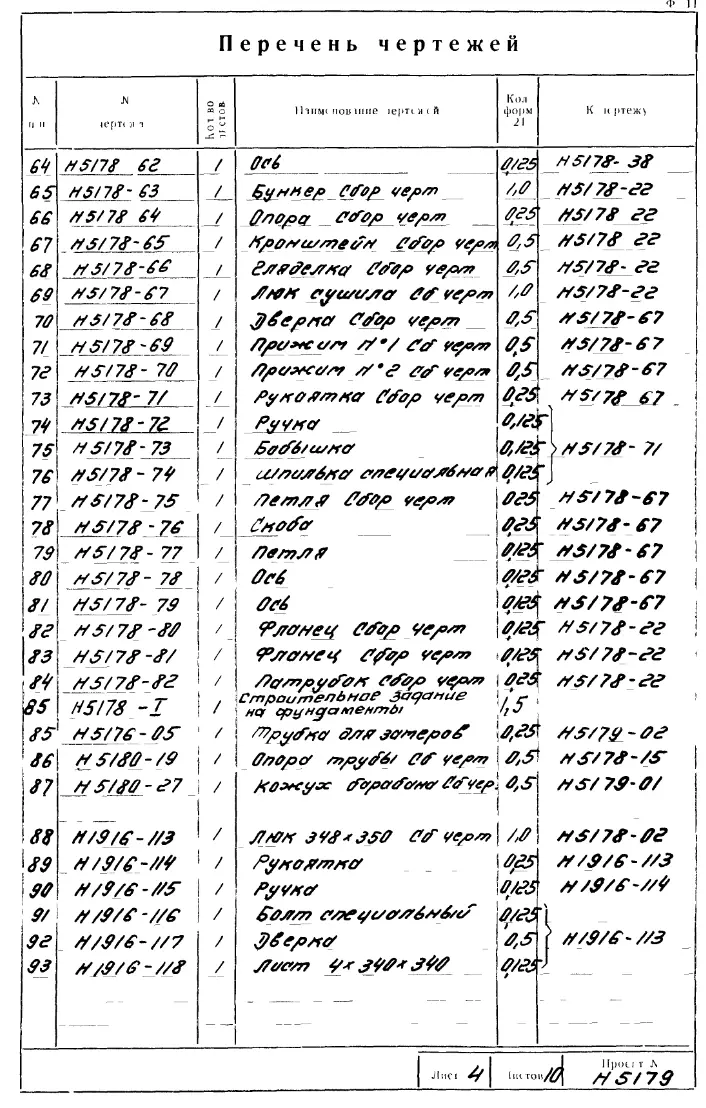 Ф 11
Перечень чертежей
№ п п | № чертежа | Кол во листов | Наименование чертежей | Кол форм 21 | К чертежу
64 | Н5178 62 | 1 | Ось | 0,125 | Н5178-38
65 | Н5178-63 | 1 | Бункер Сбор черт | 1,0 | Н5178-22
66 | Н5178 64 | 1 | Опора Сбор черт | 0,25 | Н5178 22
67 | Н5178-65 | 1 | Кронштейн Сбор черт | 0,5 | Н5178 22
68 | Н5178-66 | 1 | Гляделка Сбор черт | 0,5 | Н5178-22
69 | Н5178-67 | 1 | Люк сушила Сб черт | 1,0 | Н5178-22
70 | Н5178-68 | 1 | Дверка Сбор черт | 0,5 | Н5178-67
71 | Н5178-69 | 1 | Прижим №1 Сб черт | 0,5 | Н5178-67
72 | Н5178-70 | 1 | Прижим №2 Сб черт | 0,5 | Н5178-67
73 | Н5178-71 | 1 | Рукоятка Сбор черт | 0,25 | Н5178 67
74 | Н5178-72 | 1 | Ручка | 0,125
75 | Н5178-73 | 1 | Бобышка | 0,125 | Н5178-71
76 | Н5178-74 | 1 | Шпилька специальная | 0,125
77 | Н5178-75 | 1 | Петля Сбор черт | 025 | Н5178-67
78 | Н5178-76 | 1 | Скоба | 0,25 | Н5178-67
79 | Н5178-77 | 1 | Петля | 0,125 | Н5178-67
80 | Н5178-78 | 1 | Ось | 0,125 | Н5178-67
81 | Н5178-79 | 1 | Ось | 0,125 | Н5178-67
82 | Н5178-80 | 1 | Фланец Сбор черт | 0,125 | Н5178-22
83 | Н5178-81 | 1 | Фланец Сбор черт | 0,125 | Н5178-22
84 | Н5178-82 | 1 | Патрубок Сбор черт | 025 | Н5178-22
85 | Н5178-I | 1 | Строительное задание
на фундаменты | 1,5
85 | Н5176-05 | 1 | Трубка для замеров | 0,25 | Н5179-02
86 | Н5180-19 | 1 | Опора трубы Сб черт | 0,5 | Н5178-15
87 | Н5180-27 | 1 | Кожух барабана Сб чер. | 0,5 | Н5179-01
88 | Н1916-113 | 1 | Люк 348х350 Сб черт | 1,0 | Н5178-02
89 | Н1916-114 | 1 | Рукоятка | 0,25 | Н1916-113
90 | Н1916-115 | 1 | Ручка | 0,125 | Н1916-114
91 | Н1916-116 | 1 | Болт специальный | 0,125
92 | Н1916-117 | 1 | Дверка | 0,5 | Н1916-113
93 | Н1916-118 | 1 | Лист 4х340х340 | 0,125
Лист 4 | Листов 10 | Проект №
Н5179